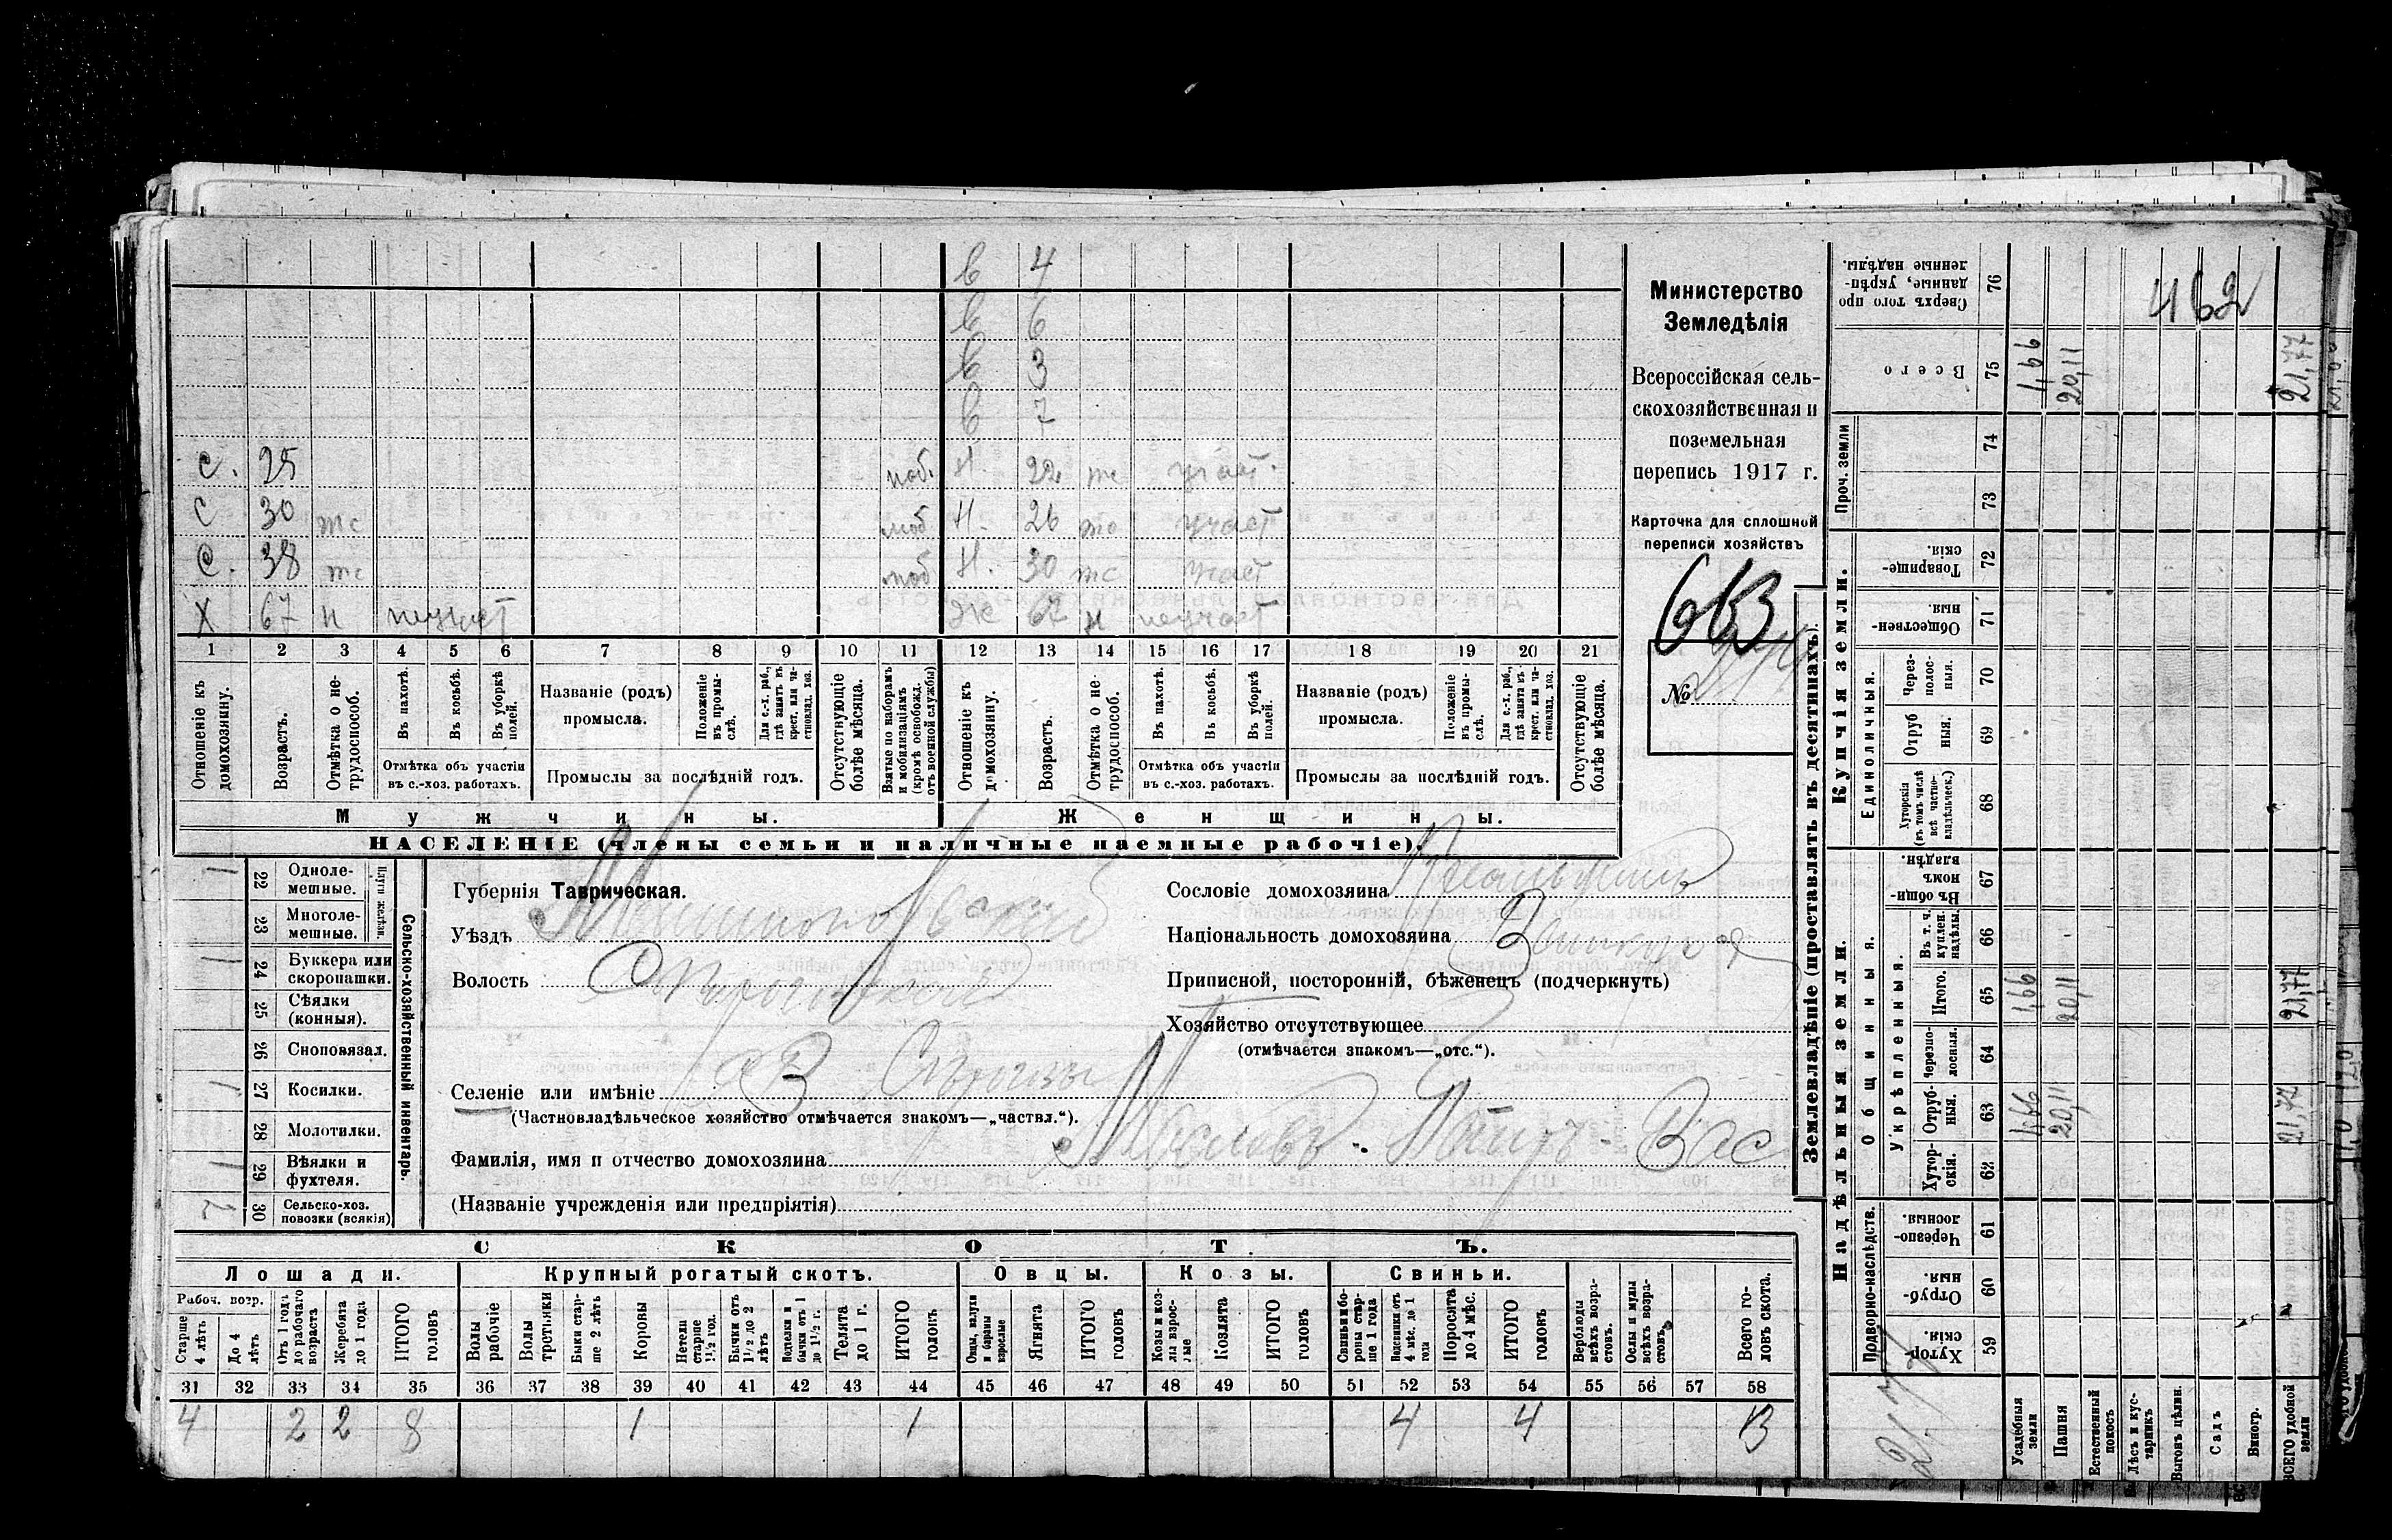 в 4
в 6
в 3
в 7
С. 25 моб. Н. 22 тс участ.
С 30 тс моб Н. 26 тс участ
С. 38 тс моб Н. 30 тс участ
Х 67 н неучаст Ж 67 н неучаст
1 2 3 4 5 6 7 8 9 10 11 12 13 14 15 16 17 18 19 20 21
Отношеніе къ домохозяину.
Возрастъ.
Отмѣтка о нетрудоспособ.
Въ пахотѣ.
Въ косьбѣ.
Въ уборкѣ полей.
Отмѣтка объ участіи
въ с.-хоз. работахъ.
Названіе (родъ)
промысла.
Положеніе въ промыслѣ.
Для с.-х. раб., гдѣ занятъ въ крест. или частновлад. хоз.
Промыслы за послѣдній годъ.
Отсутствующіе болѣе мѣсяца.
Взятые по наборамъ и мобилизаціямъ (кромѣ освобожд. отъ военной службы)
Отношеніе къ домохозяину.
Возрастъ.
Отмѣтка о нетрудоспособ.
Въ пахотѣ.
Въ косьбѣ.
Въ уборкѣ полей.
Отмѣтка объ участіи
въ с.-хоз. работахъ.
Названіе (родъ)
промысла.
Положеніе въ промыслѣ.
Для с.-х. раб., гдѣ занята въ крест. или частновлад. хоз.
Промыслы за послѣдній годъ.
Отсутствующіе болѣе мѣсяца.
Мужчины. Женщины.
НАСЕЛЕНІЕ (члены семьи и наличные наемные рабочіе).
Министерство
Земледѣлія
Всероссійская сель-
скохозяйственная и
поземельная
перепись 1917 г.
Карточка для сплошной
переписи хозяйствъ
№
Сельско-хозяйственный инвентарь.
Плуги желѣзн.
1 22 Однолемешные.
23 Многолемешные.
1 24 Буккера или скоропашки.
25 Сѣялки (конныя).
26 Сноповязал.
1 27 Косилки.
28 Молотилки.
1 29 Вѣялки и фухтеля.
30 Сельско-хоз. повозки (всякія)
Губернія Таврическая.
Уѣздъ
Волость
Селеніе или имѣніе
(Частновладѣльческое хозяйство отмѣчается знакомъ—„частвл.“).
Фамилія, имя и отчество домохозяина Масловъ Вас
(Названіе учрежденія или предпріятія)
Сословіе домохозяина
Національность домохозяина
Приписной, посторонній, бѣженецъ (подчеркнуть)
Хозяйство отсутствующее
(отмѣчается знакомъ—„отс.“).
СКОТЪ.
Лошади. Крупный рогатый скотъ. Овцы. Козы. Свиньи.
Рабоч. возр.
Старше 4 лѣтъ
До 4 лѣтъ
Отъ 1 года до рабочаго возраста
Жеребята до 1 года
ИТОГО головъ
Волы рабочіе
Волы третьяки
Быки старше 2 лѣтъ
Коровы
Нетели старше 1½ год.
Бычки отъ 1½ до 2 лѣтъ
Подтелки и бычки отъ 1 до 1½ г.
Телята до 1 г.
ИТОГО головъ
Овцы, валухи и бараны взрослые
Ягнята
ИТОГО головъ
Козы и козлы взрослые
Козлята
ИТОГО головъ
Свиньи и боровы старше 1 года
Подсвинки отъ 4 мѣс. до 1 года
Поросята до 4 мѣс.
ИТОГО головъ
Верблюды всѣхъ возрастовъ.
Ослы и мулы всѣхъ возрастовъ.
Всего головъ скота.
31 32 33 34 35 36 37 38 39 40 41 42 43 44 45 46 47 48 49 50 51 52 53 54 55 56 57 58
4 2 2 8 1 1 4 4 13
Землевладѣніе (проставлять въ десятинахъ).
Надѣльныя земли.
Купчія земли.
Проч. земли
Подворно-наслѣдств.
Общинныя.
Укрѣпленныя.
Единоличныя.
Сверхъ того проданные, укрѣпленные надѣлы. 76
Всего 75
74
73
Товарищескія. 72
Общественныя 71
Черезполосныя. 70
Отрубныя. 69
Хуторскія (въ томъ числѣ всѣ частновладѣльческ.) 68
Въ общинномъ владѣн. 67
Въ т. ч. куплен. надѣлы. 66
Итого. 65
Черезполосныя. 64
Отрубныя. 63
Хуторскія. 62
Черезполосныя. 61
Отрубныя. 60
Хуторскія. 59
Усадебныя земли 1,66 1,66 1,66
Пашня 20,11 20,11 20,11
Естественный покосъ
Лѣсъ и кустарникъ
Выгонъ цѣлин.
Садъ
Виногр.
ВСЕГО удобной земли 21,77 21,77 21,77
462
21,77